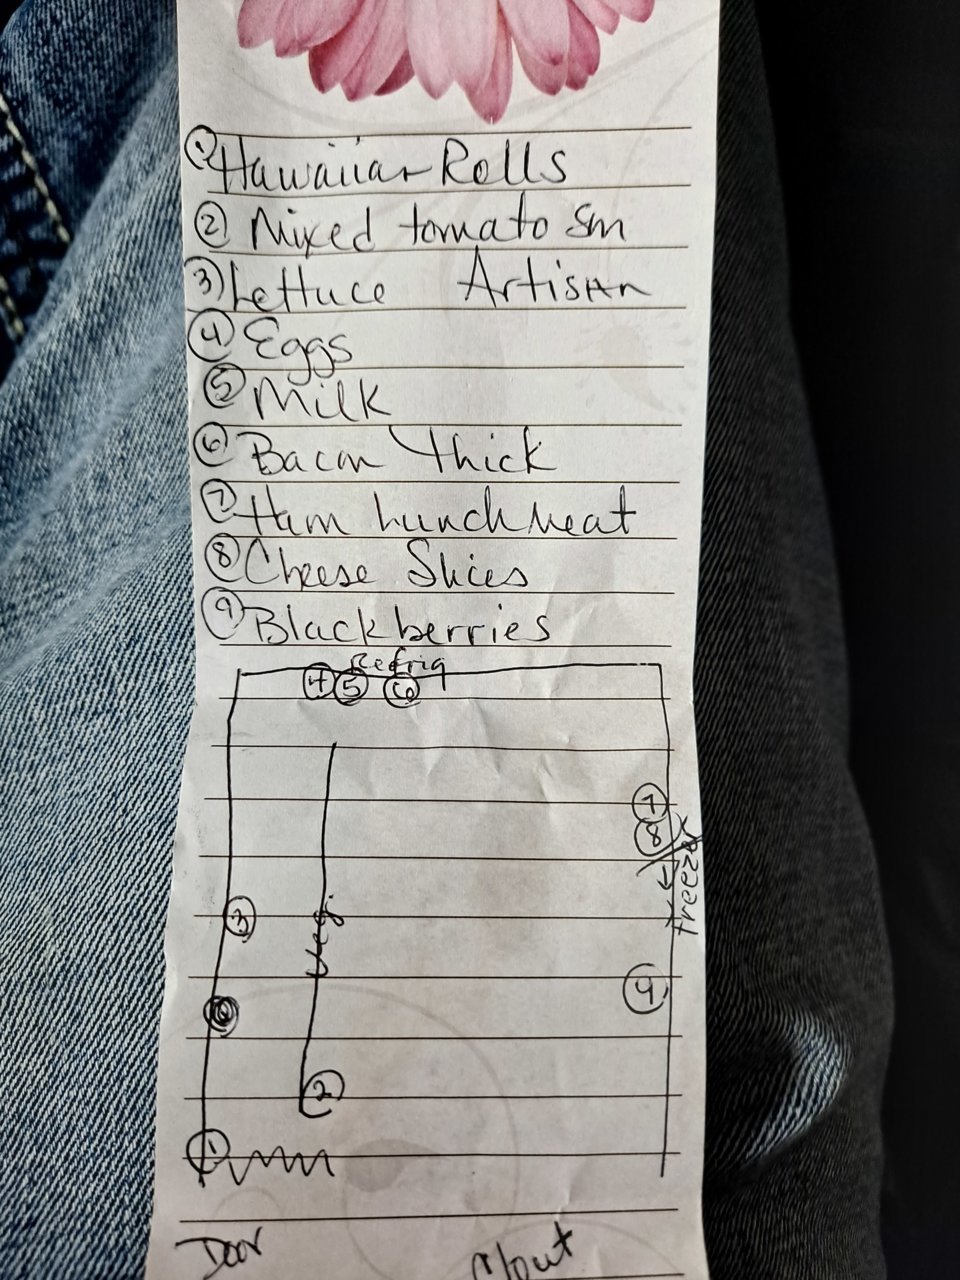 ① Hawaiian Rolls
② Mixed tomato Sm
③ Lettuce Artisan
④ Eggs
⑤ Milk
⑥ Bacon Thick
⑦ Ham Lunch Meat
⑧ Cheese Slices
⑨ Blackberries
Refrig
④ ⑤ ⑥
⑦
⑧
Freezer
③
Veg.
⑨
②
①
Door